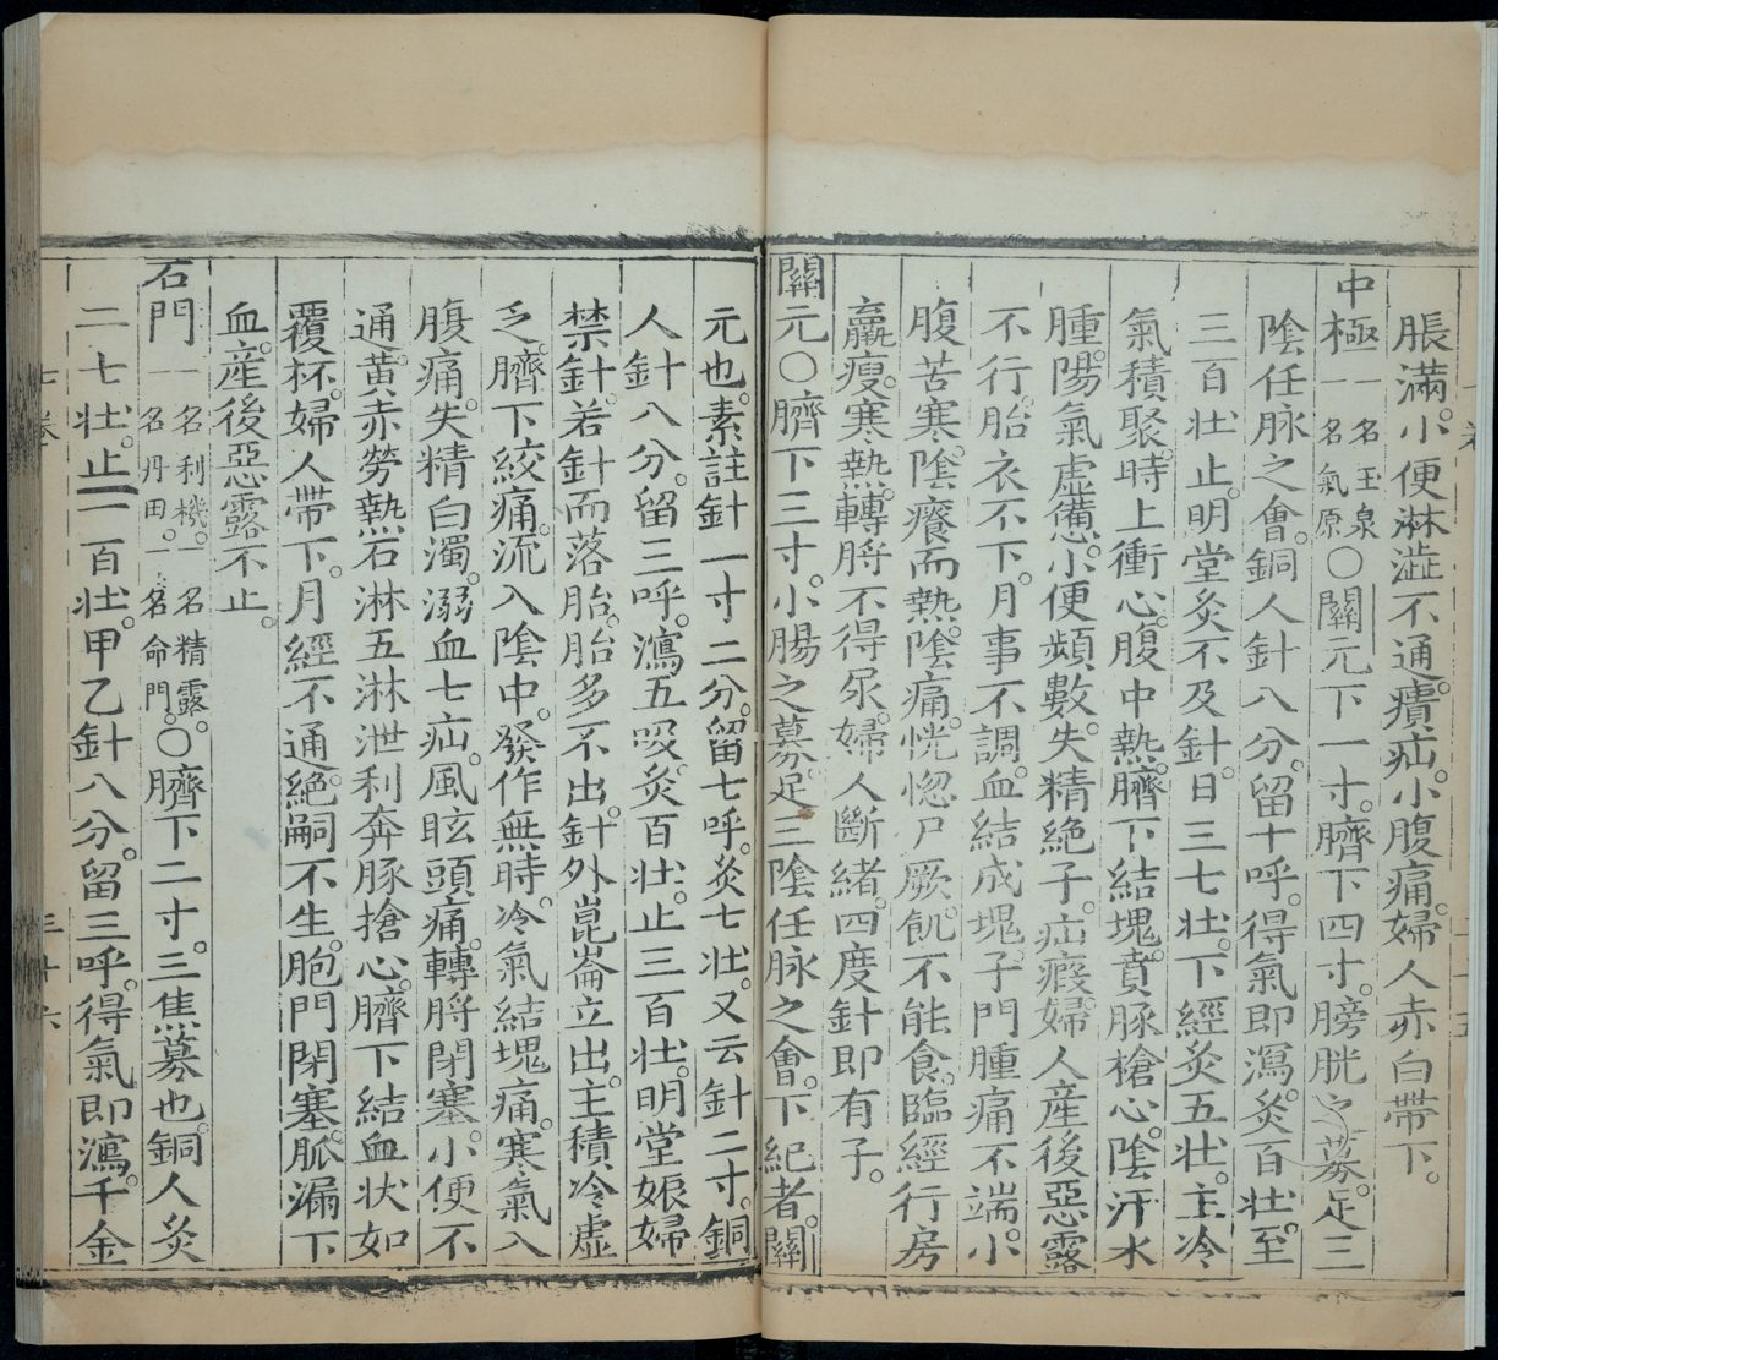 脹滿。小便淋澁不通。㿉疝。小腹痛。婦人赤白帶下。
中極一名玉泉一名氣原〇關元下一寸。臍下四寸。膀胱之募。足三
陰任脉之會。銅人針八分。留十呼。得氣即瀉。灸百壯。至
三百壯止。明堂灸不及針。日三七壯。下經灸五壯。主冷
氣積聚。時上衝心。腹中熱。臍下結塊。賁豚槍心。陰汗水
腫。陽氣虛憊。小便頻數。失精絶子。疝瘕。婦人産後惡露
不行。胎衣不下。月事不調。血結成塊。子門腫痛不端。小
腹苦寒。陰癢而熱。陰痛。恍惚尸厥。飢不能食。臨經行房
羸瘦。寒熱。轉脬不得尿。婦人斷緒。四度針即有子。
關元〇臍下三寸。小腸之募。足三陰任脉之會。下紀者。關
元也。素註針一寸二分。留七呼。灸七壯。又云針二寸。銅
人針八分。留三呼。瀉五吸。灸百壯。止三百壯。明堂娠婦
禁針。若針而落胎。胎多不出。針外崑崙立出。主積冷虛
乏。臍下絞痛。流入陰中。發作無時。冷氣結塊痛。寒氣入
腹痛。失精白濁。溺血七疝。風眩頭痛。轉脬閉塞。小便不
通。黃赤勞熱。石淋五淋泄利。奔豚搶心。臍下結血。狀如
覆杯。婦人帶下。月經不通。絶嗣不生。胞門閉塞。脈漏下
血。産後惡露不止。
石門一名利機。一名精露。一名丹田。一名命門。〇臍下二寸。三焦募也。銅人灸
二七壯。止一百壯。甲乙針八分。留三呼。得氣即瀉。千金
七卷
三十六